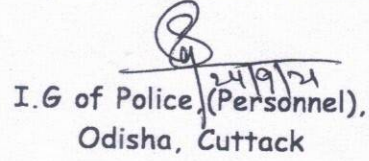 24/9/21
I.G of Police, (Personnel),
Odisha, Cuttack